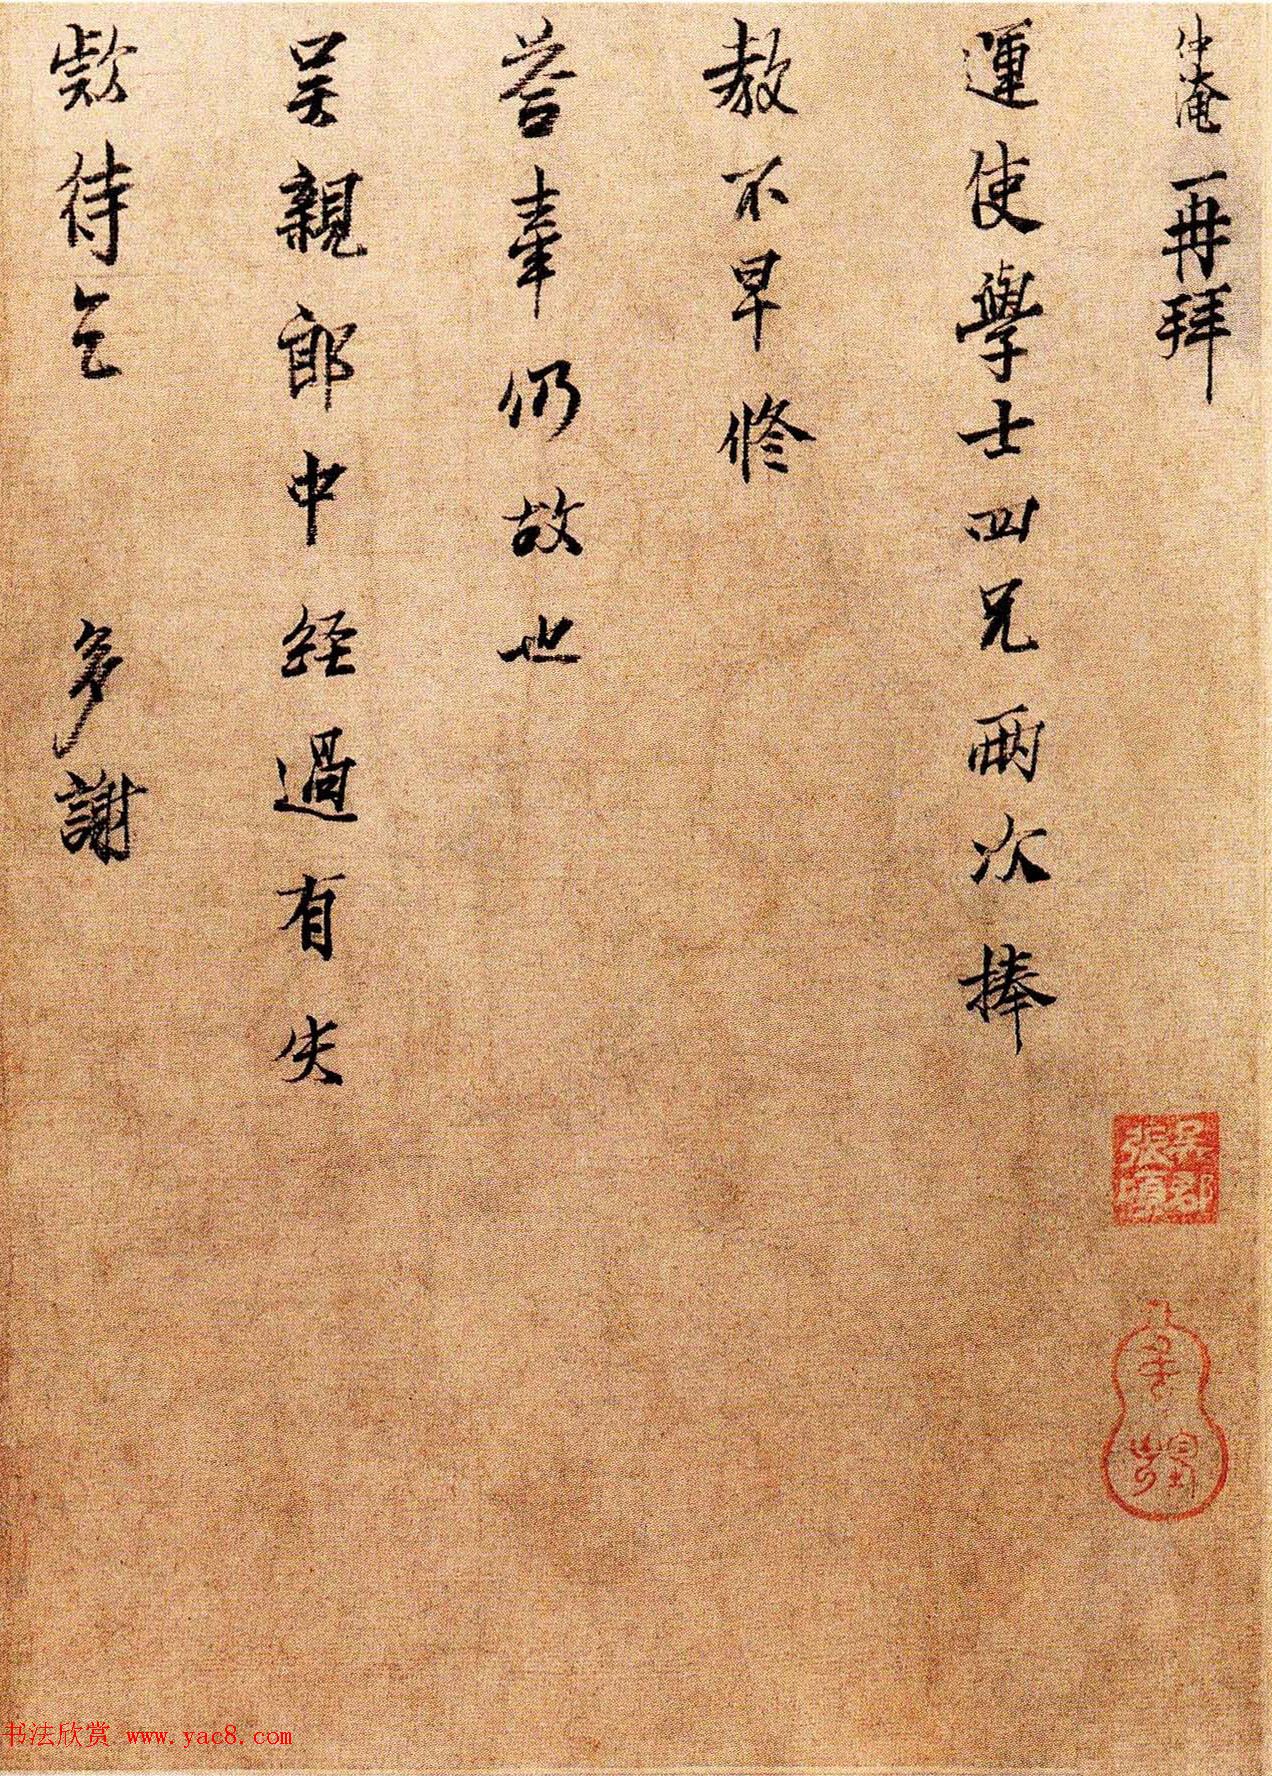 仲淹再拜
運使學士四兄兩次捧
教不早修
荅牽仍故也
吴親郎中経過有失
欵待乞多謝
吴郡
張
书法欣赏 www.yac8.com